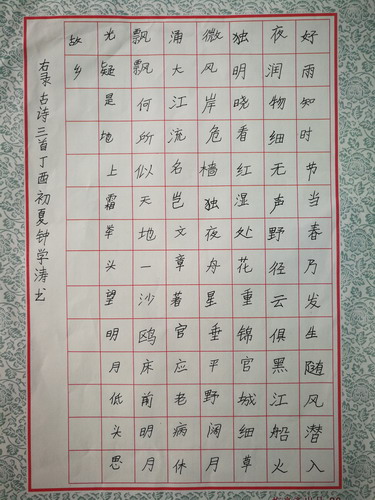 好雨知时节当春乃发生随风潜入
夜润物细无声野径云俱黑江船火
独明晓看红湿处花重锦官城细草
微风岸危樯独夜舟星垂平野阔月
涌大江流名岂文章著官应老病休
飘飘何所似天地一沙鸥床前明月
光疑是地上霜举头望明月低头思
故乡
右录古诗三首丁酉初夏钟学涛书